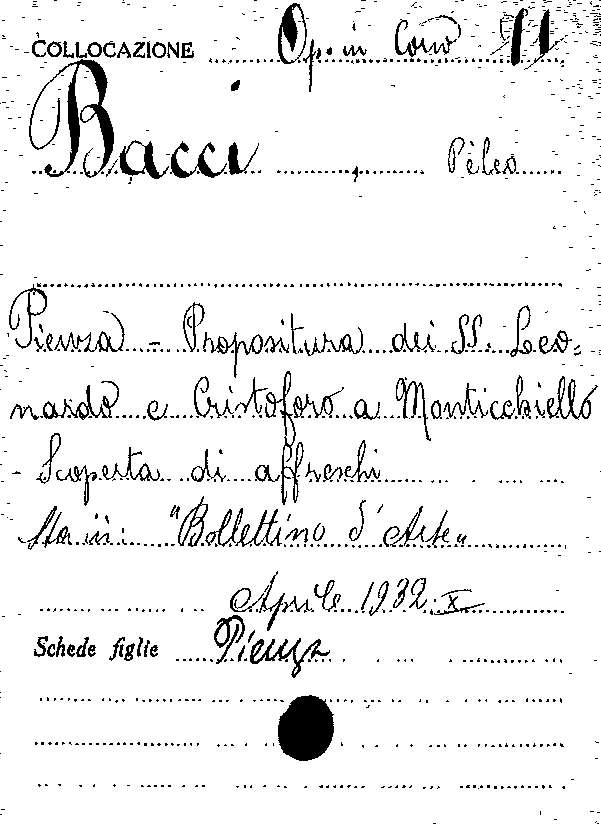 COLLOCAZIONE Op. in Corso
Bacci, Pèleo
Pienza - Propositura dei SS. Leo=
nardo e Cristoforo a Monticchiello
- Scoperta di affreschi
Sta in: "Bollettino d'Arte"
Aprile 1932. X
Schede figlie Pienza